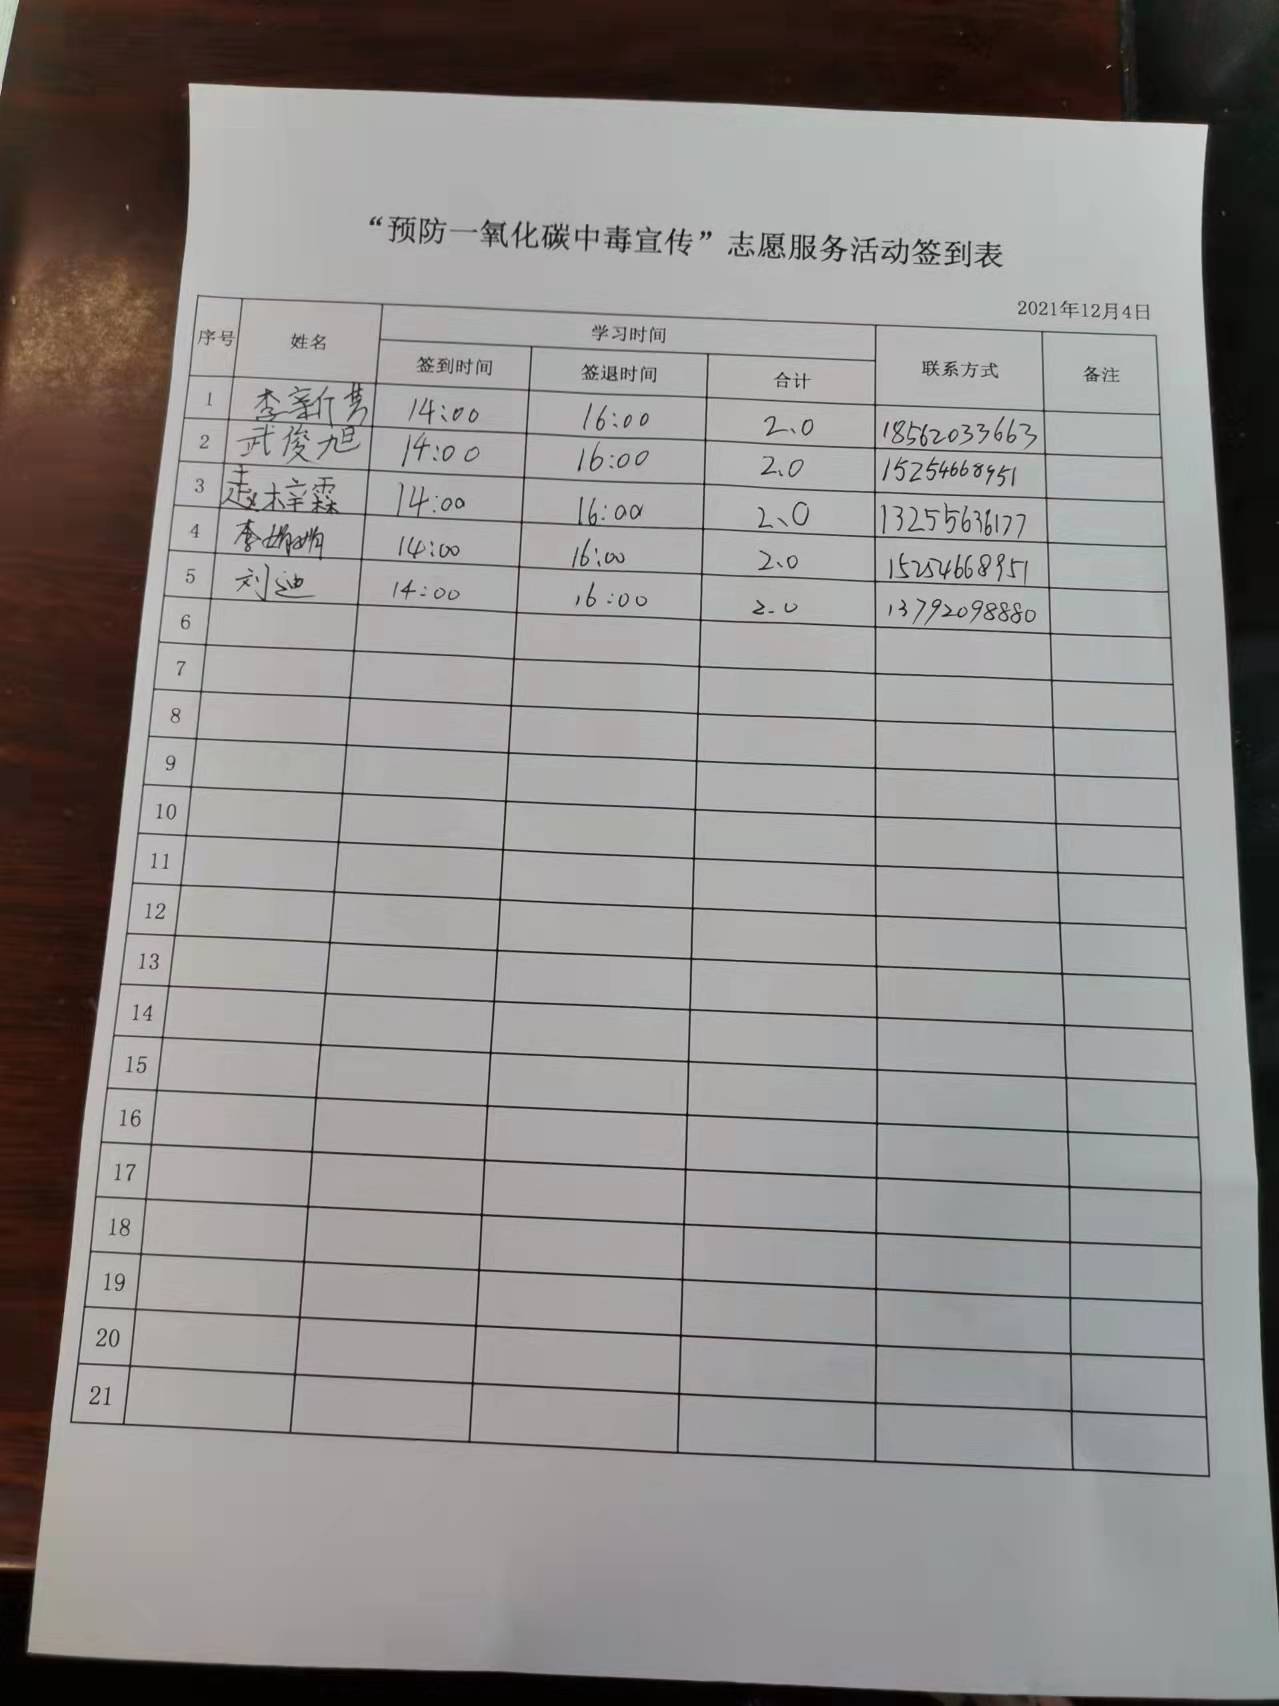 “预防一氧化碳中毒宣传”志愿服务活动签到表
2021年12月4日
序号 姓名 学习时间 联系方式 备注
签到时间 签退时间 合计
1 李新芳 14:00 16:00 2.0 18562033663
2 武俊旭 14:00 16:00 2.0 15254668951
3 孟梓霖 14:00 16:00 2.0 13255636177
4 李娟娟 14:00 16:00 2.0 15254668951
5 刘迪 14:00 16:00 2.0 13792098880
6
7
8
9
10
11
12
13
14
15
16
17
18
19
20
21